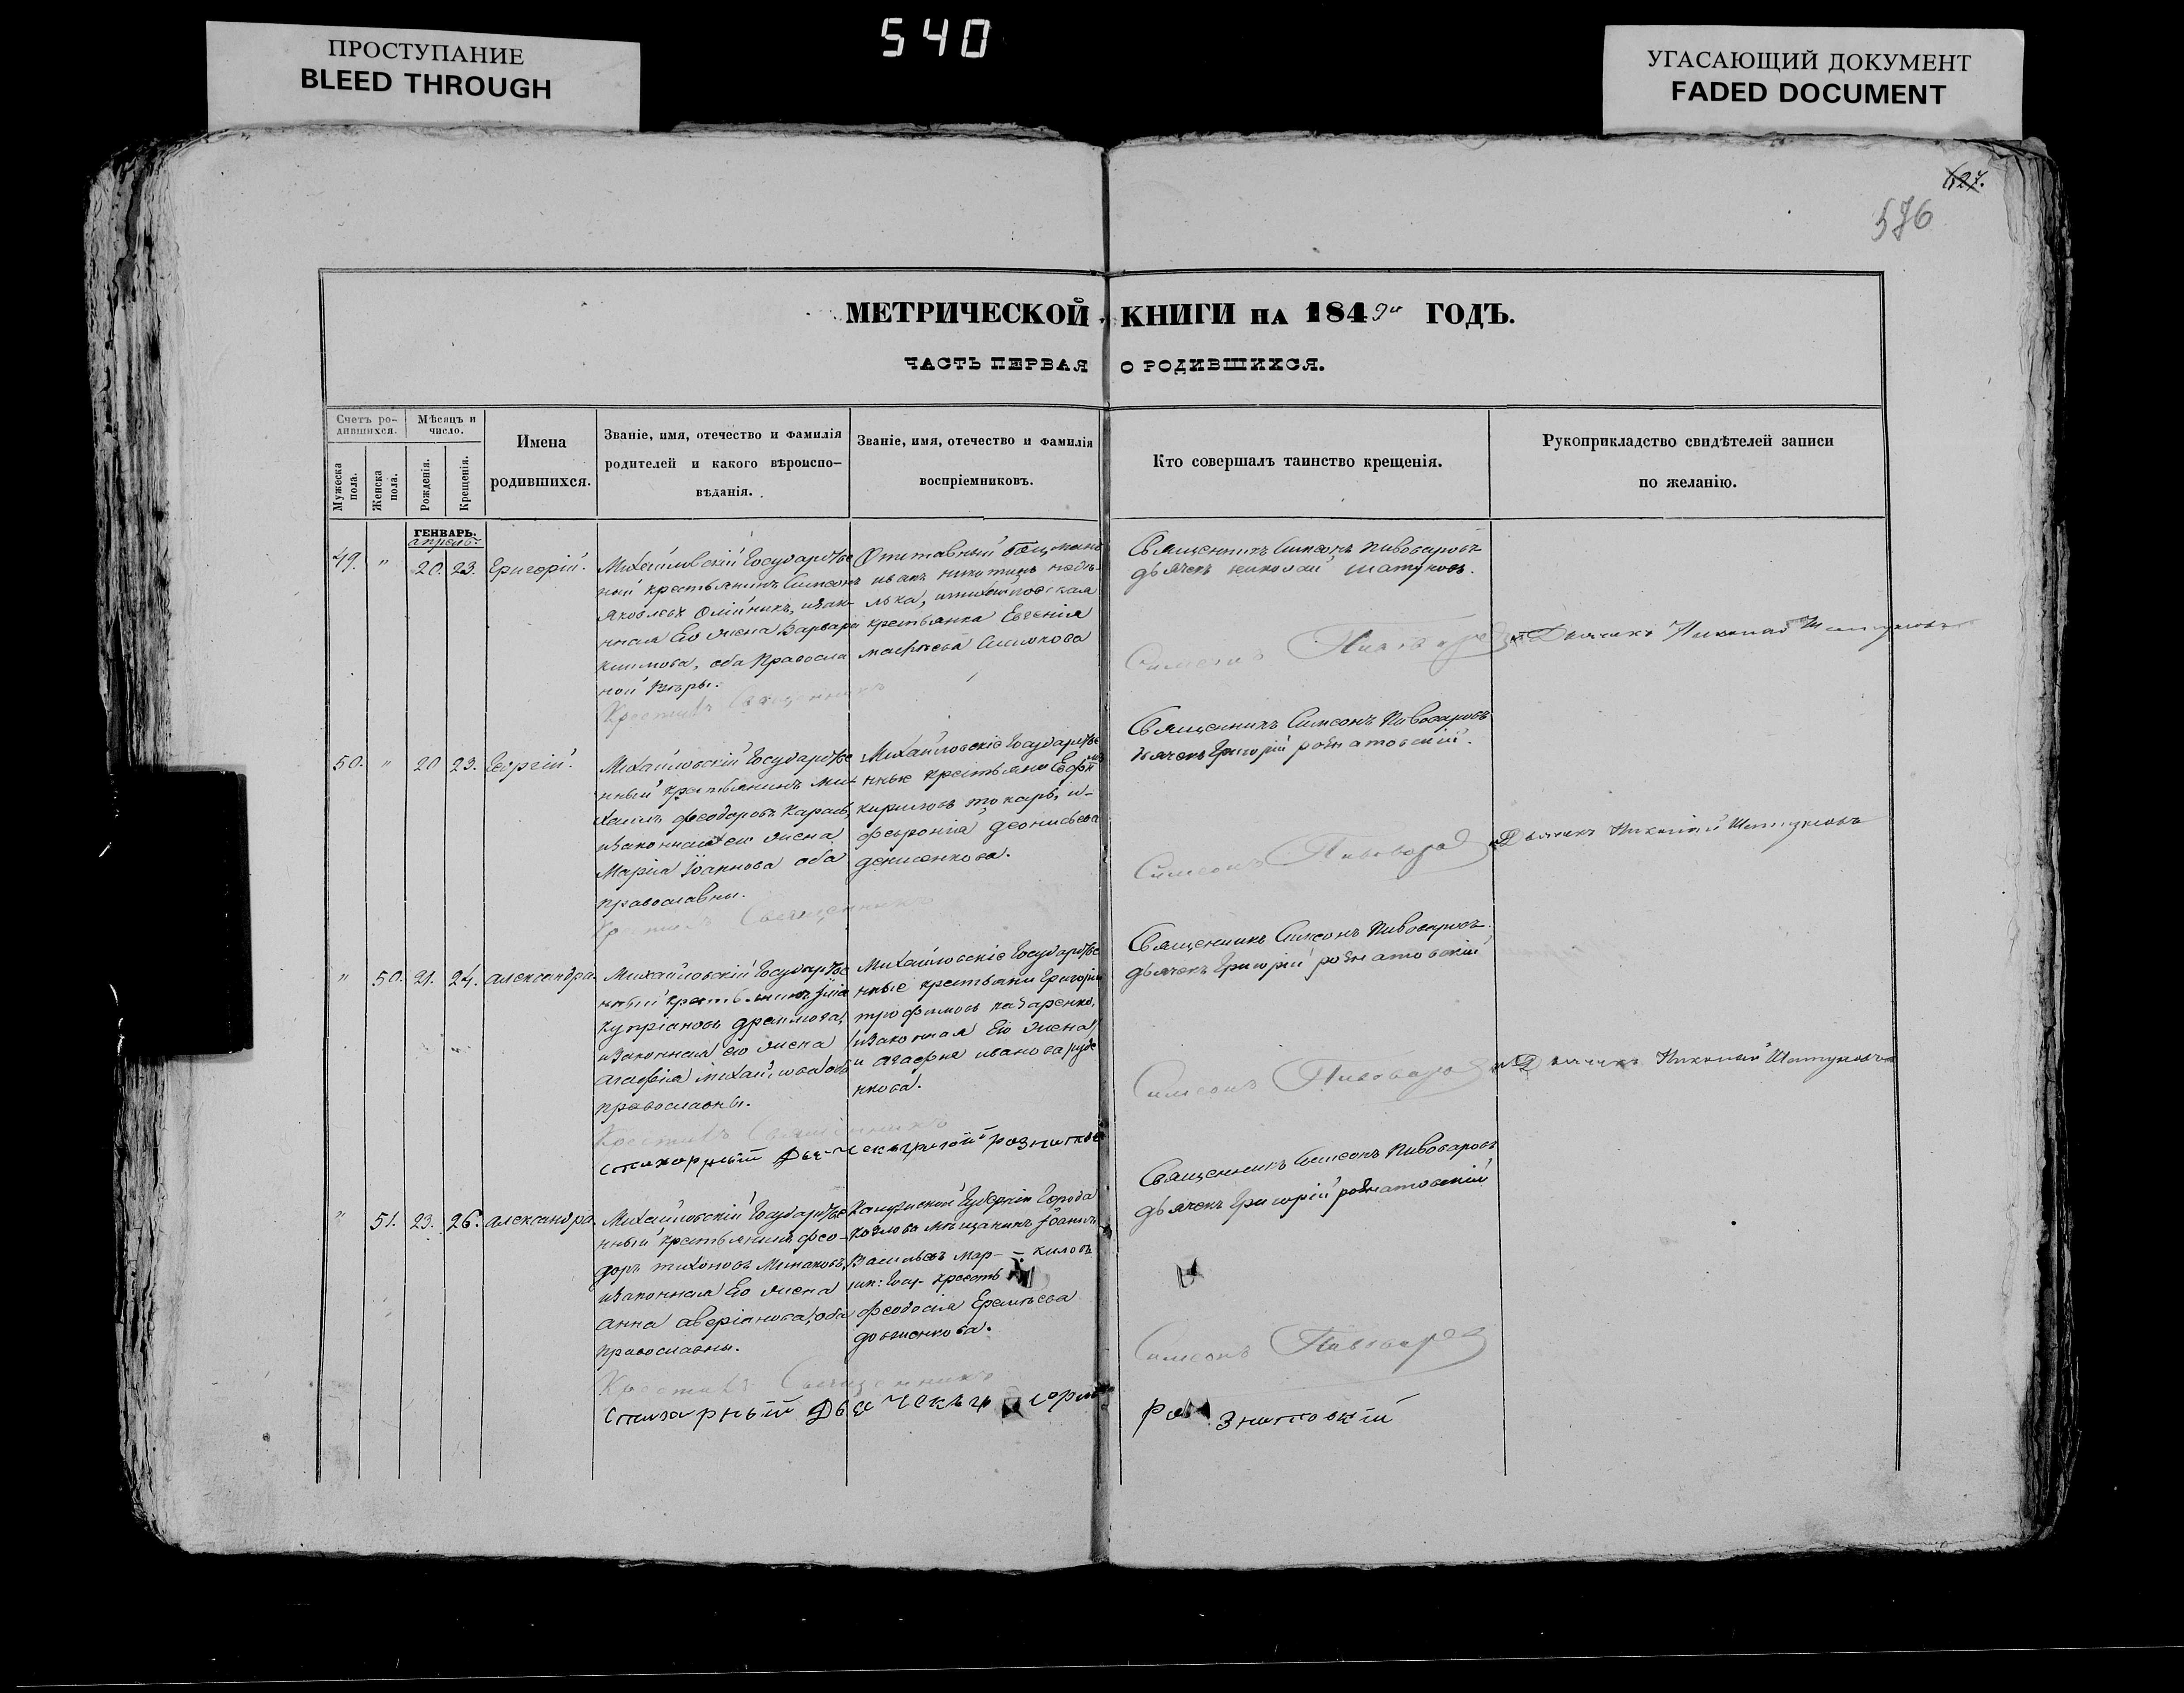 540
ПРОСТУПАНИЕ
BLEED THROUGH
УГАСАЮЩИЙ ДОКУМЕНТ
FADED DOCUMENT
627.
576
МЕТРИЧЕСКОЙ КНИГИ НА 1849й ГОДЪ.
ЧАСТЬ ПЕРВАЯ О РОДИВШИХСЯ.
Счетъ ро-
дившихся.
Мужеска
пола.
Женска
пола.
Мѣсяцъ и
число.
Рожденія.
Крещенія.
Имена
родившихся.
Званіе, имя, отечество и фамилія
родителей и какого вѣроиспо-
вѣданія.
Званіе, имя, отечество и фамилія
воспріемниковъ.
Кто совершалъ таинство крещенія.
Рукоприкладство свидѣтелей записи
по желанію.
ГЕНВАРЬ.
апрель
49. " 20. 23. Григорій.
Михайловскій Государстве
ный крестьянинъ Симеонъ
Яковлевъ Олійникъ, изакон-
нная Его жена Варвара
Климова, оба Православ
ной Вѣры.
Отставный боцманъ
иванъ никитинъ
имихайловская
крестьянка Евгенія
Священникъ Симеонъ Пивоваровъ
дьячекъ николай шатуновъ.
Крестилъ Священникъ
Симеонъ Пивоваровъ
Дьячекъ Николай Шатуновъ
50. " 20 23. Георгій.
Михайловскій Государстве
нный крестьянинъ Ми-
хаилъ феодоровъ Карась,
изаконная его жена
Марія Іоаннова оба
православны.
Михайловскіе Государстве
нные крестьяне Ефимъ
кириловъ токарь, и-
февронія деонисьева
денисенкова.
Священникъ Симеонъ Пивоваровъ
дьячекъ Григорій розматовскій.
Крестилъ Священникъ
Симеонъ Пивоваровъ
Дьячекъ Николай Шатуновъ
" 50. 21. 24. александра.
Михайловскій Государстве
нный крестьянинъ
купріановъ
изаконная его жена
агафіа михайлова оба
православны.
Михайловскіе Государстве
нные крестьяни Григорій
трофимовъ назаренко,
изаконная Его жена
и агафия иванова руде
нкова.
Священникъ Симеонъ Пивоваровъ
дьячекъ Григорій розматовскій
Крестилъ Священникъ
Симеонъ Пивоваровъ
Дьячекъ Николай Шатуновъ
стихарный Дьячекъ
" 51. 23. 26. александра.
Михайловскій Государстве
нный крестьянинъ фео-
доръ тихоновъ
изаконная Его жена
анна аверіанова, оба
православны.
Губерніи Города
козлова мѣщанинъ Іоаннъ
Васильевъ мар- - киловъ
феодосія Еремѣева
довженкова.
Священникъ Симеонъ Пивоваровъ
дьячекъ Григорій розматовскій
Крестилъ Священникъ
Симеонъ Пивоваровъ
стихарный Дьячекъ